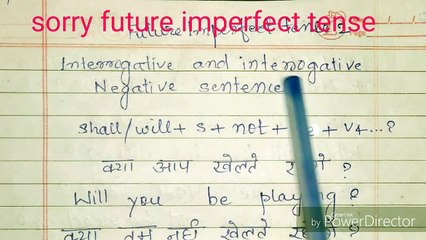 sorry future imperfect tense
Future imperfect tense
Interrogative and interrogative
Negative sentence
shall/will + s + not + + V4...?
क्या आप खेलते रहेंगे ?
Will you be playing ?
क्या तुम नहीं खेलते रहोगे ?
by PowerDirector